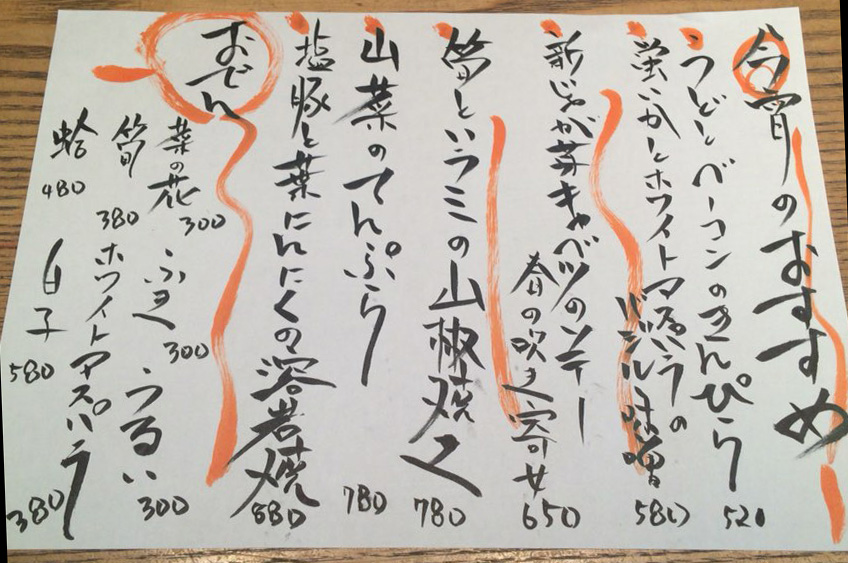 今宵のおすすめ
うどとベーコンのきんぴら 520
蛍いかとホワイトアスパラの
バジル味噌 580
新じゃが芋キャベツのソテー
春の吹き寄せ 650
筍といラミの山椒焼き 780
山菜のてんぷら 780
塩豚と葉にんにくの溶岩焼 880
おでん
菜の花 300
ふき 300
うるい 300
筍 380
ホワイトアスパラ 380
蛤 480
白子 580